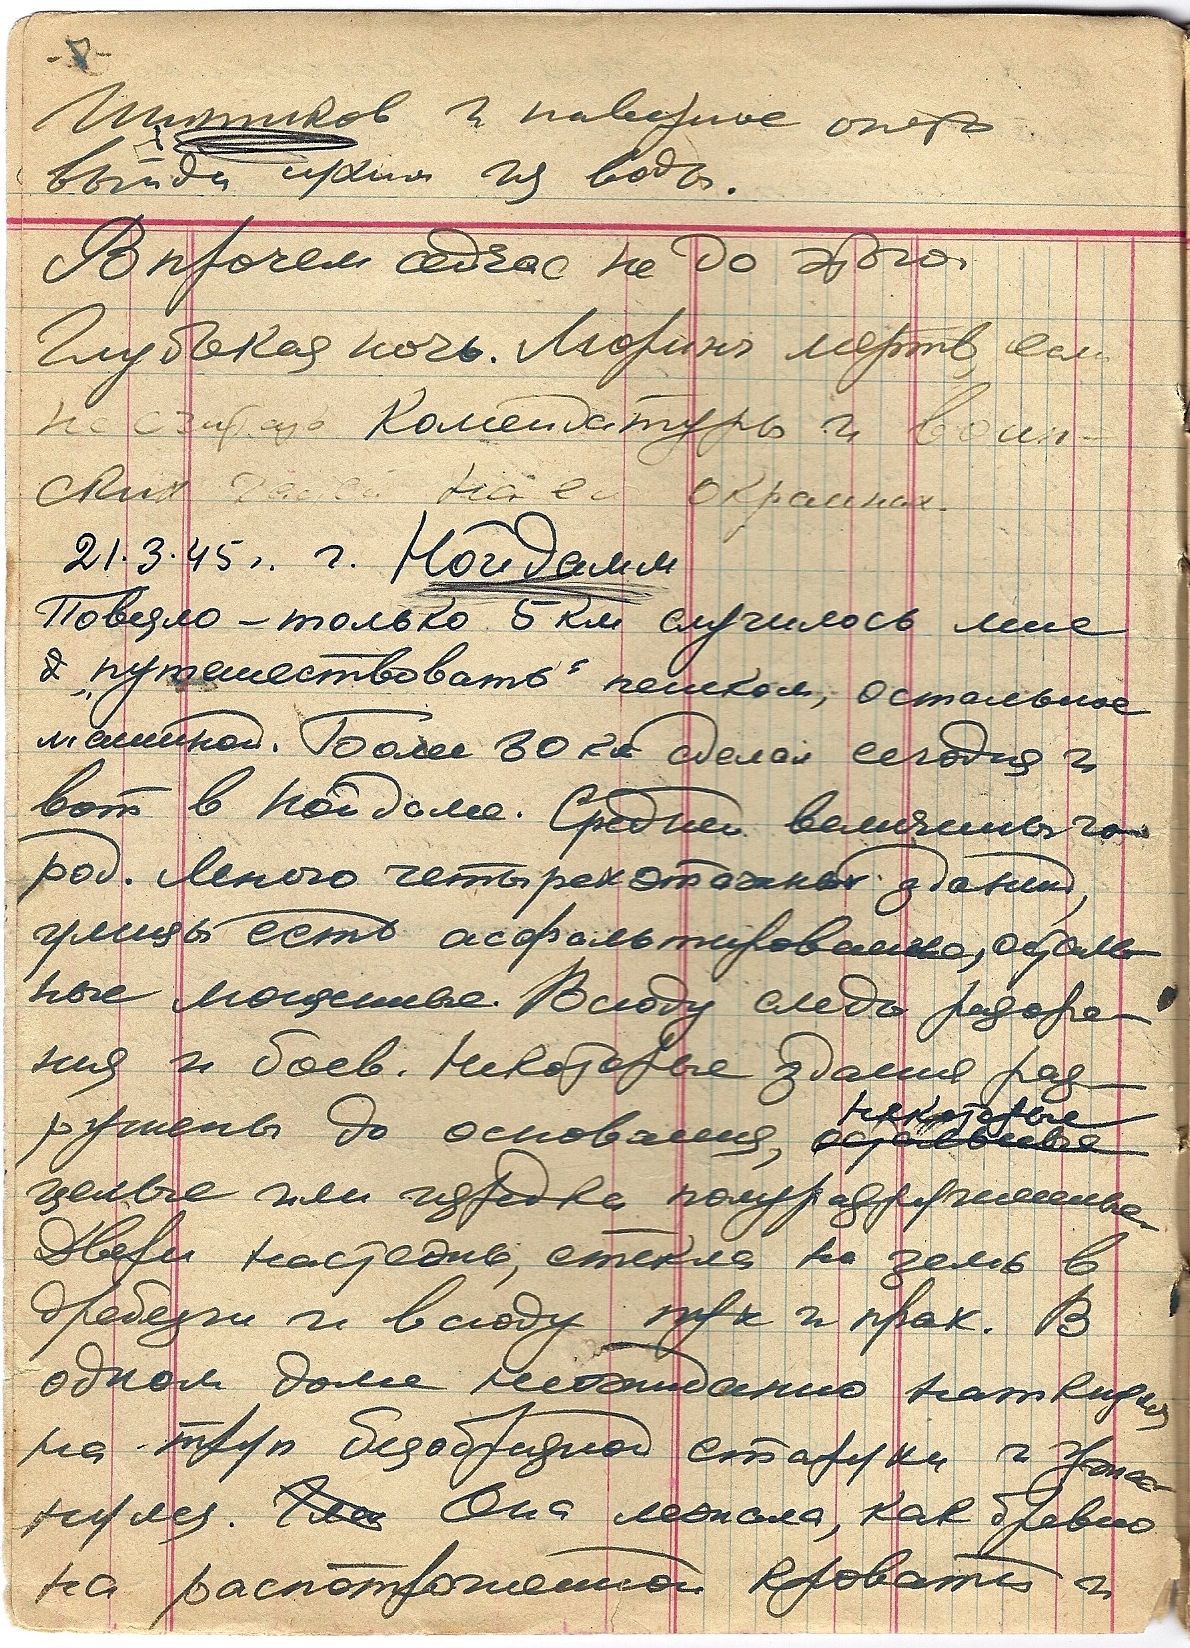 -8-
Шитиков и наверное опять
выйди сухим из воды.
Впрочем сейчас не до этого.
Глубокая ночь. Морин мертв, если
не считать комендатуры и воин-
ских частей на его окраинах.
21.3.45г. г. Нойдамм
Повезло – только 5 км случилось мне
"путешествовать" пешком, остальное
машиной. Более 30 км сделал сегодня и
вот в Нойдаме. Средней величины го-
род. Много четырехэтажных зданий,
улицы есть асфальтированные, осталь-
ные мощенные. Всюду следы разоре-
ния и боев. Некоторые здания раз-
рушены до основания, остальные некоторые
целые или изредка полуразрушенные.
Двери настежь, стекла на земь в
дребезги и всюду пух и прах. В
одном доме неожиданно наткнулся
на труп безобразной старухи и ужас-
нулся. Она лежала, как бревно
на распотрошенной кровати и